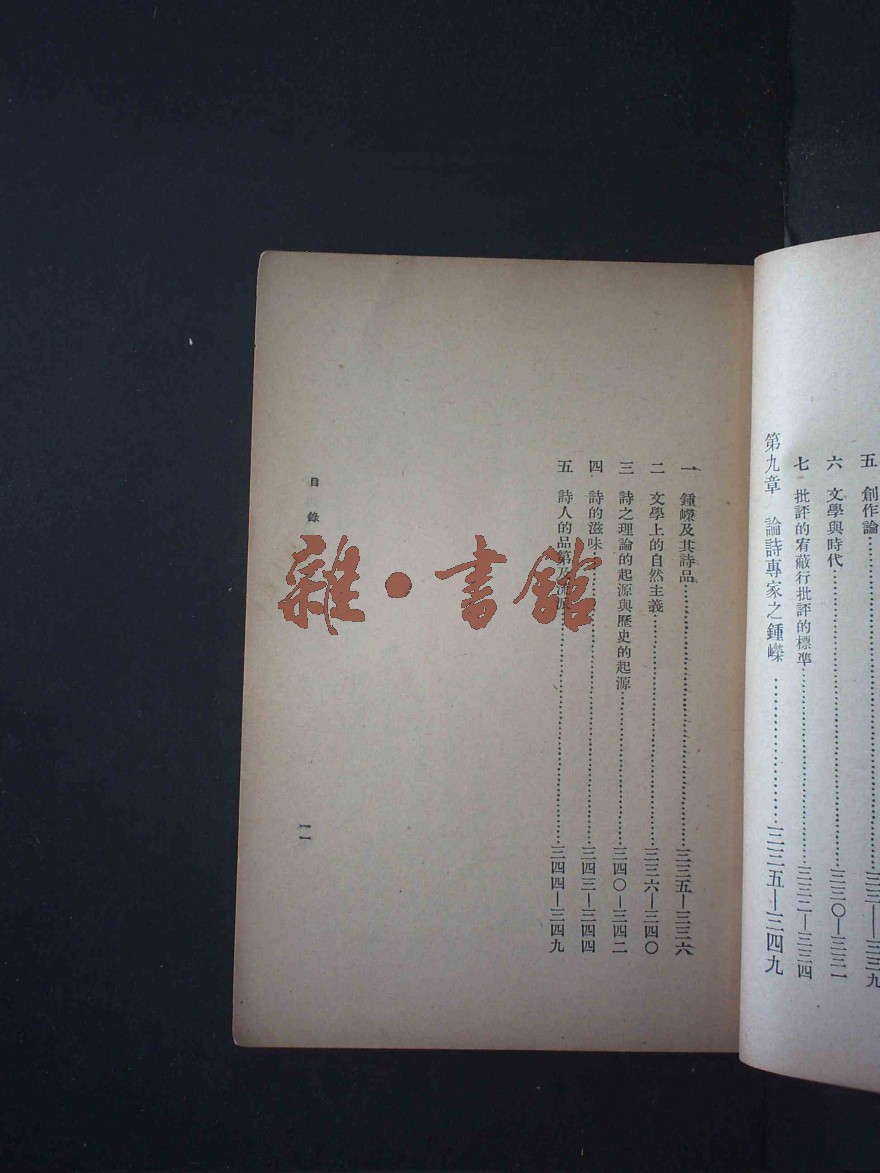 五 創作論……三二二—三二九
六 文學與時代……三三〇—三三一
七 批評的宥蔽行批評的標準……三三二—三三四
第九章 論詩專家之鍾嶸……三三五—三四九
一 鍾嶸及其詩品……三三五—三三六
二 文學上的自然主義……三三六—三四〇
三 詩之理論的起源與歷史的起源……三四〇—三四二
四 詩的滋味……三四三—三四四
五 詩人的品第及流派……三四四—三四九
目錄
一一
雜·書館